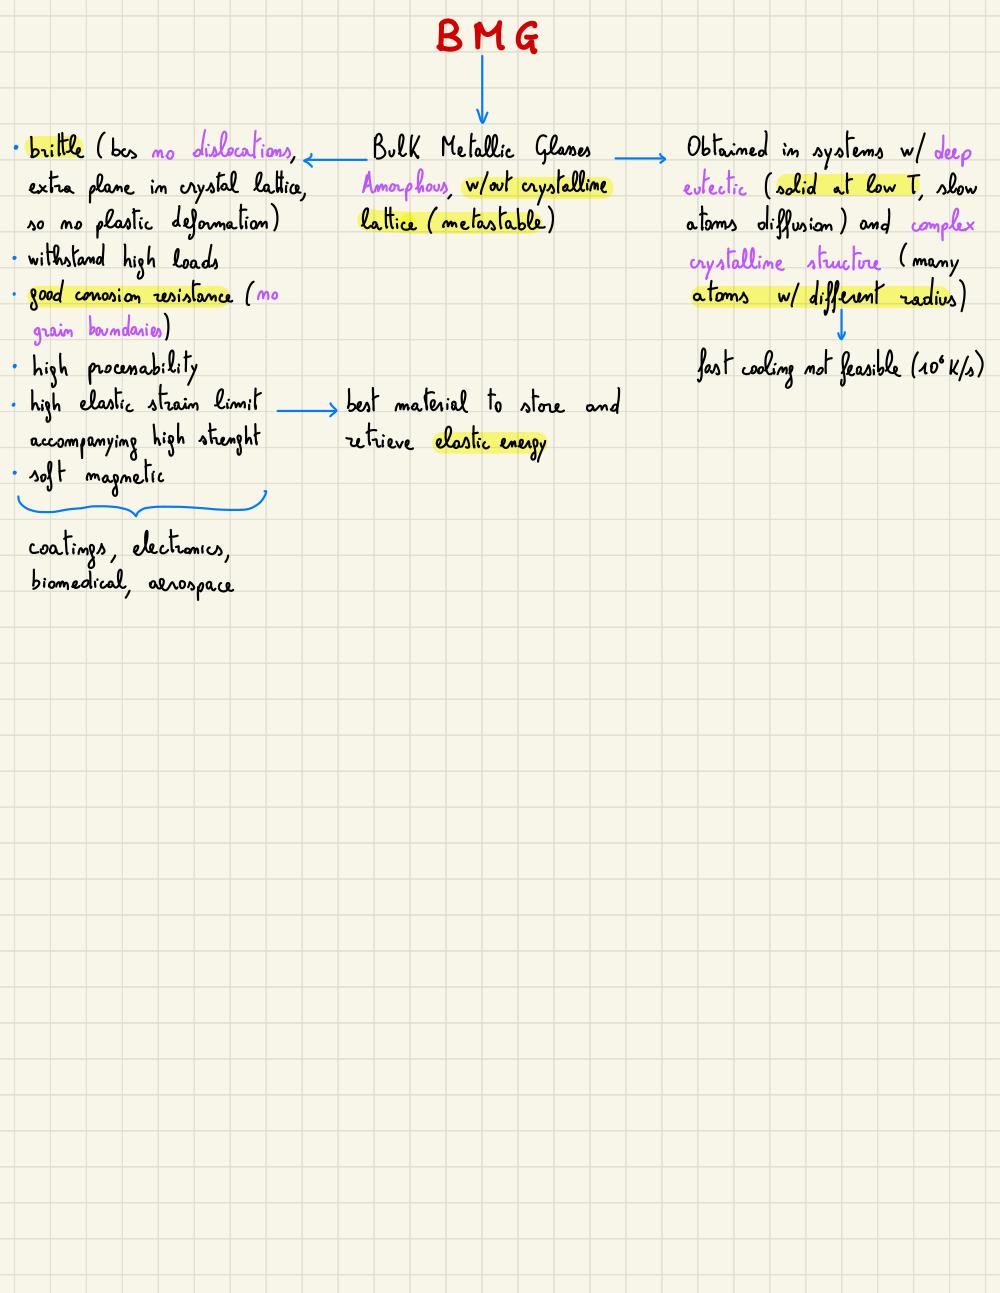 BMG
• brittle (bcs no dislocations,
extra plane in crystal lattice,
so no plastic deformation)
• withstand high loads
• good corrosion resistance (no
grain boundaries)
• high processability
• high elastic strain limit
accompanying high strenght
• soft magnetic
coatings, electronics,
biomedical, aerospace
Bulk Metallic Glasses
Amorphous, w/out crystalline
lattice (metastable)
best material to store and
retrieve elastic energy
Obtained in systems w/ deep
eutectic (solid at low T, slow
atoms diffusion) and complex
crystalline structure (many
atoms w/ different radius)
fast cooling not feasible (10⁶ K/s)